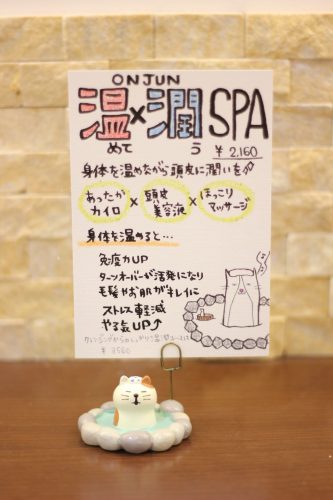 ONJUN
温×潤 SPA
めて う
¥2,160
身体を温めながら頭皮に潤いを
あったかカイロ × 頭皮美容液 × ほっこりマッサージ
身体を温めると…
免疫力UP
ターンオーバーが活発になり
毛髪やお肌がキレイに
ストレス軽減
やる気UP↑